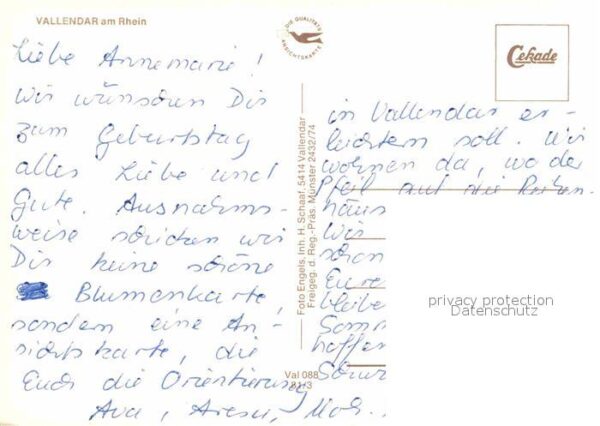 VALLENDAR am Rhein
DIE QUALITÄTS
ANSICHTSKARTE
Cekade
Liebe Annemarie!
Wir wünschen Dir
zum Geburtstag
alles Liebe und
Gute. Ausnahms-
weise schicken wir
Dir keine schöne
Blumenkarte,
sondern eine An-
sichtskarte, die
Euch die Orientierung
in Vallendar er-
leichtern soll. Wir
wohnen da, wo der
Pfeil auf die Reihen-
häus
Wir
schon
Eure
bleibe
Somm
hoffen
Foto Engels, Inh. H. Schaaf, 5414 Vallendar
Freigeg. d. Reg.-Präs. Münster 2432/74
Val 088
81/3
privacy protection
Datenschutz